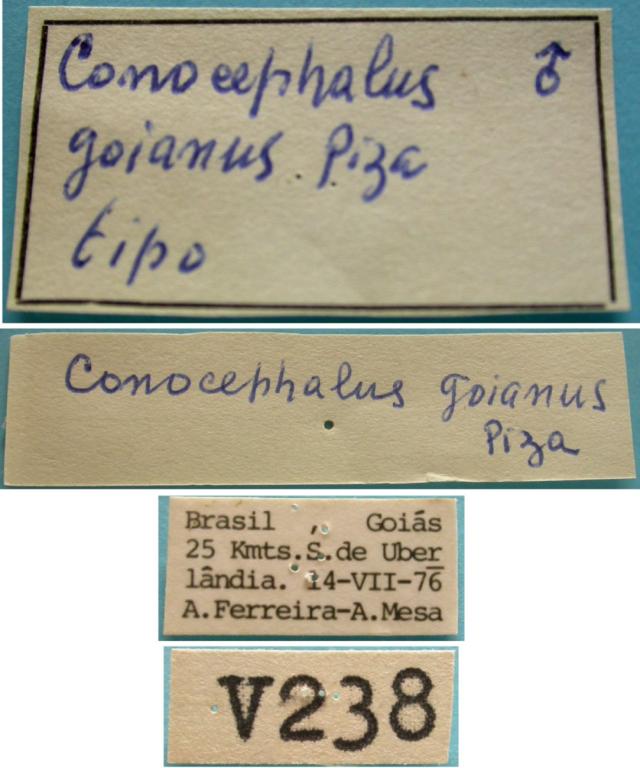 Conocephalus ♂
goianus Piza
tipo
Conocephalus goianus
Piza
Brasil , Goiás
25 Kmts.S.de Uber
lândia. 14-VII-76
A.Ferreira-A.Mesa
V238